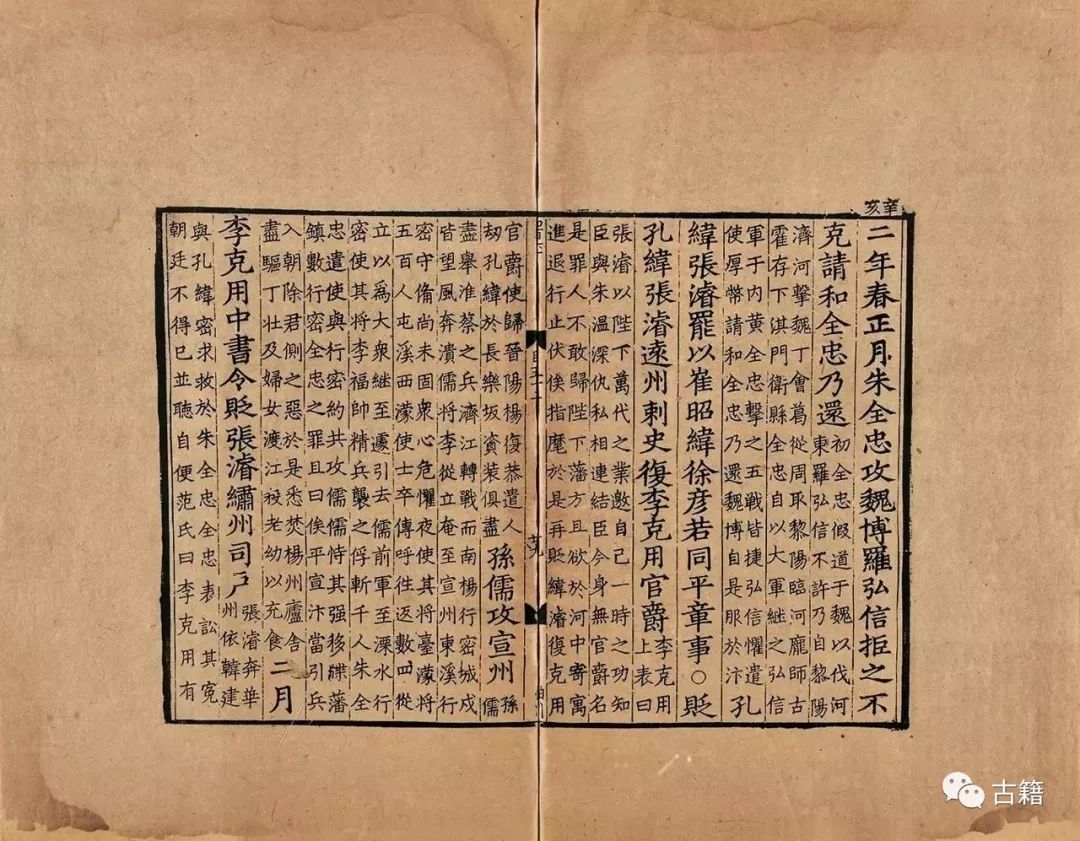 辛亥
二年春正月朱全忠攻魏博羅弘信拒之不
克請和全忠乃還
初全忠假道于魏以伐河
東羅弘信不許乃自黎陽
濟河擊魏丁會葛從周取黎陽臨河龐師古
霍存下淇門衛縣全忠自以大軍繼之弘信
軍于内黄全忠擊之五戰皆捷弘信懼遣
使厚幣請和全忠乃還魏博自是服於汴
孔
緯張濬罷以崔昭緯徐彦若同平章事○貶
孔緯張濬遠州刺史復李克用官爵
李克用
上表曰
張濬以陛下萬代之業邀自己一時之功知
臣與朱温深仇私相連結臣今身無官爵名
是罪人不敢歸陛下藩方且欲於河中寄寓
進退行止伏俟指麾於是再貶緯濬復克用
目五十二
官爵使歸晉陽楊復恭遣人
劫孔緯於長樂坂資裝俱盡
孫儒攻宣州
孫
儒
盡舉淮蔡之兵濟江轉戰而南楊行密城戍
皆望風奔潰儒將李從立奄至宣州東溪行
密守備尚未固衆心危懼夜使其將臺濛將
五百人屯溪西濛使士卒傳呼往返數四從
立以爲大衆繼至遽引去儒前軍至溧水行
密使其將李福帥精兵襲之俘斬千人朱全
忠遣使與行密約共攻儒儒恃其强移牒藩
鎮數行密全忠之罪且曰俟平宣汴當引兵
入朝除君側之惡於是悉焚楊州廬舍
盡驅丁壯及婦女渡江殺老幼以充食
二月
李克用中書令貶張濬繡州司户
張濬奔華
州依韓建
與孔緯密求救於朱全忠全忠表訟其冤
朝廷不得已並聽自便范氏曰李克用有
古籍